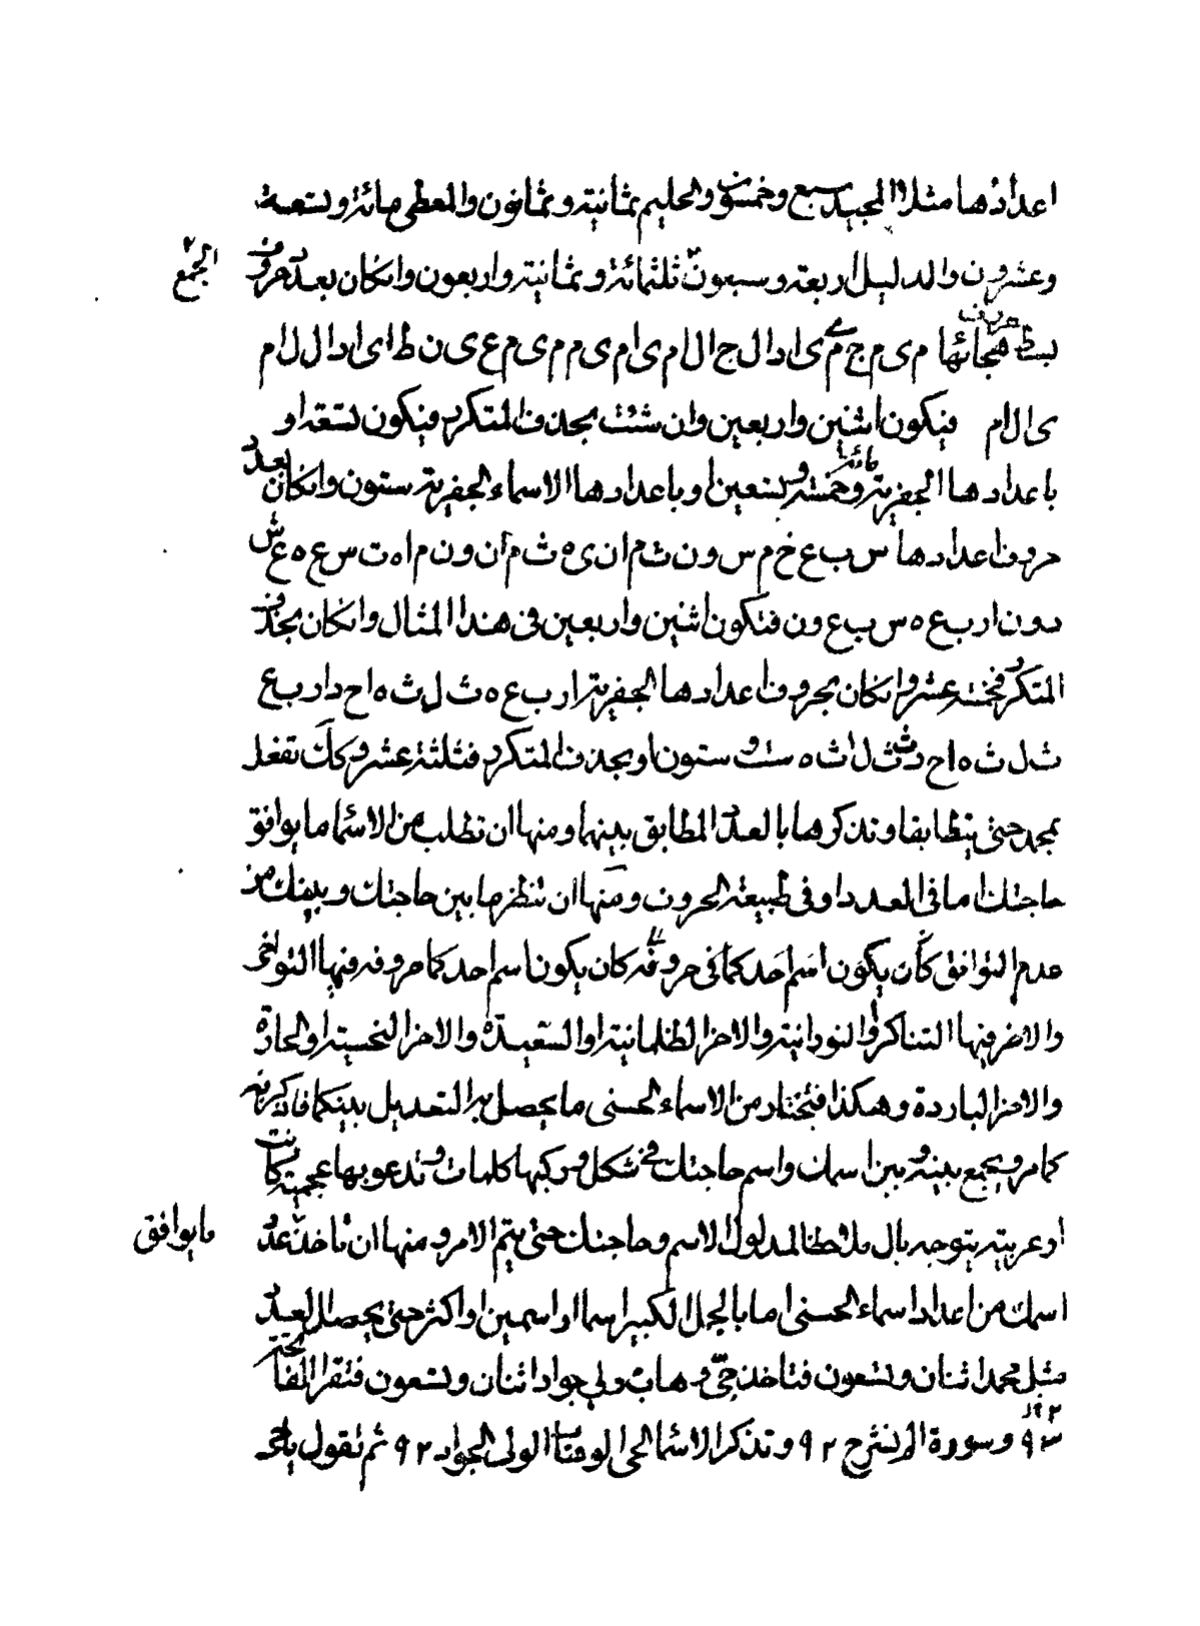 اعدادها مثلا المجيد سبع وخمسون والحليم ثمانية وثمانون والمعطي مائة وتسعة
وعشرون والدليل اربعة وسبعون ثلثمائة وثمانية واربعون وانكان بعدد حروف
الجمع
بسط هجائها م ى م ج ى م ى ا د ال ج ا ل ا م ى ا م ى م م ى م ع ى ن ط ا ى ا د ا ل ل ا م
ى ا ل ا م فيكون اثنين واربعين وان شئت بحذف المتكرر فيكون تسعة او
باعدادها الجفرية وخمسة وتسعين او باعدادها الاسماء الجفرية ستون وانكان بعدد
حروف اعدادها س ب ع خ م س و ن ث م ا ن ى ه ث م ا ن و ن م ا ه ت س ع ه ع ش
ر و ن ا ر ب ع ه س ب ع و ن فتكون اثنين واربعين في هذا المثال وانكان بحذف
المتكرر فخمسة عشر وانكان بحروف اعدادها الجفرية ا ر ب ع ه ث ل ث ه ا ح د ا ر ب ع
ث ل ث ه ا ح د ث ل ا ث ه ستون او بحذف المتكرر فثلثة عشر وكك تفعل
بمجد حتى يتطابقا وتذكرها بالعدد المطابق بينهما ومنها ان تطلب من الاسما ما يوافق
حاجتك اما في العدد او في طبيعة الحروف ومنها ان تنظر ما بين حاجتك وبينك من
عدم التوافق كأن يكون اسم احدكما في حروفه كان يكون اسم احدكما حروفه فيها التواخى
والاخر فيها التناكر او النورانية والاخر الظلمانية او السعيدة والاخر النحسية او الحارة
والاخر الباردة وهكذا فتختار من الاسماء الحسنى ما يحصل به التعديل بينكما فاذكر به
كما مر ويجمع بينه وبين اسمك واسم حاجتك في شكل وركبها كلمات وتدعو بها عجمية كانت
او عربية بتوجه بال ملاحظا لمدلول الاسم وحاجتك حتى يتم الامر ومنها ان تاخذ عدد
ما يوافق
اسمك من اعداد اسماء الحسنى اما بالجمل الكبير اسما او اسمين او اكثر حتى يحصل العدد
مثل محمد اثنان وتسعون فتاخذ حي وهاب ولي جواد اثنان وتسعون فتقرا الفاتحة
٩٢ وسورة الم نشرح ٩٢ وتذكر الاسما الحي الوهاب الولى الجواد ٩٢ ثم تقول يا حى